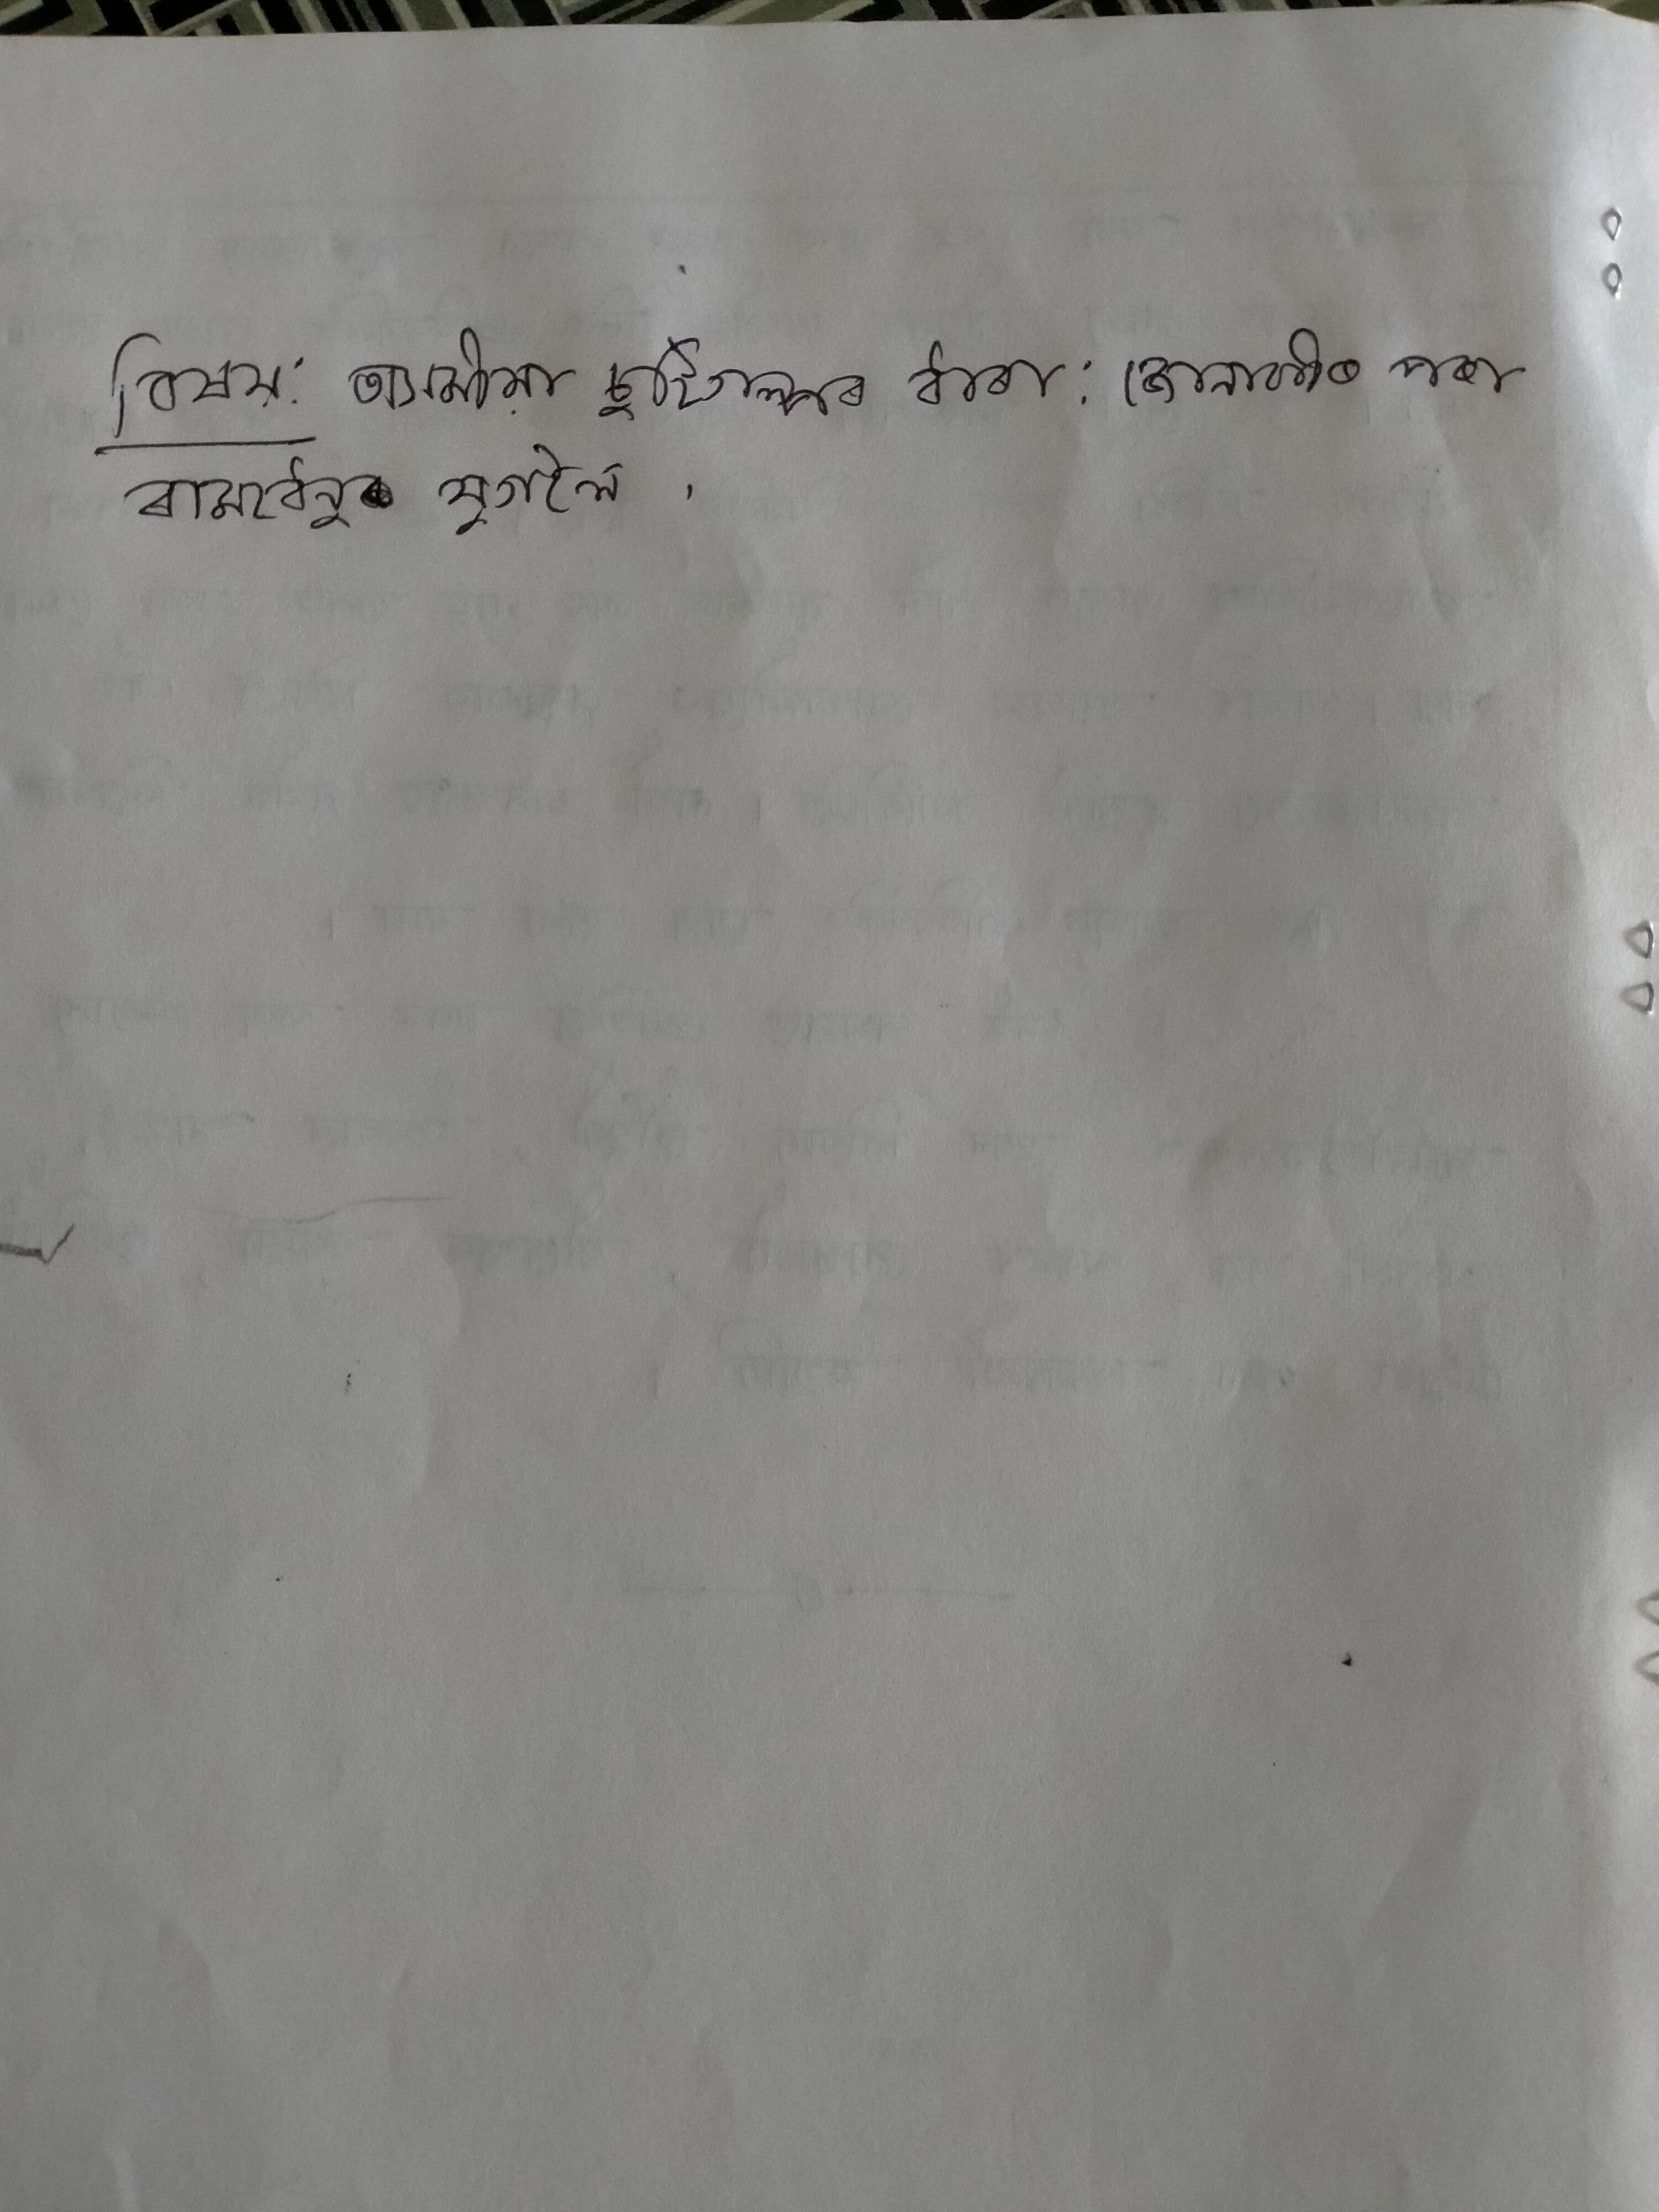 বিষয়: অসমীয়া চুটিগল্পৰ ধাৰা: জোনাকীৰ পৰা
ৰামধেনুৰ যুগলৈ,